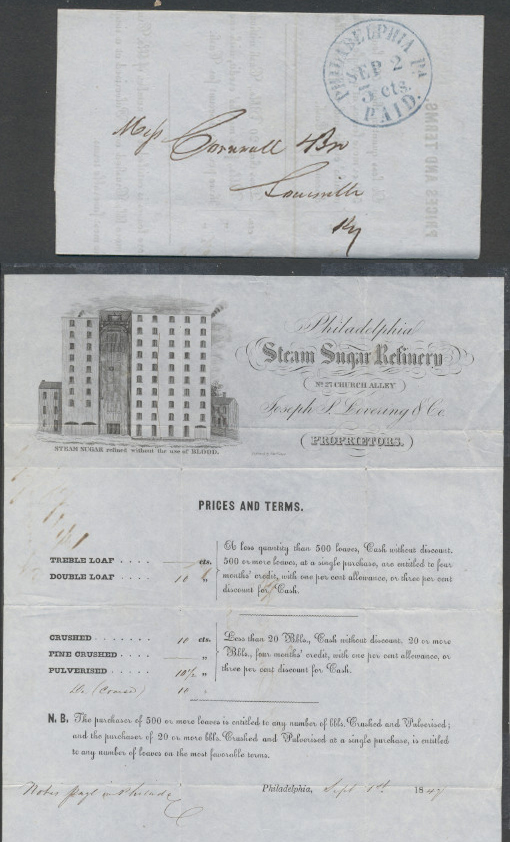 PHILADELPHIA PA
SEP 2
5 cts.
PAID.
Mess Cornwall & Bro
Louisville
Ky
PRICES AND TERMS
Philadelphia
Steam Sugar Refinery
No. 27 CHURCH ALLEY
Joseph S. Lovering & Co.
PROPRIETORS.
STEAM SUGAR refined without the use of BLOOD.
PRICES AND TERMS.
TREBLE LOAF . . . . cts.
DOUBLE LOAF . . . . 10 ½
A less quantity than 500 loaves, Cash without discount.
500 or more loaves, at a single purchase, are entitled to four
months' credit, with one per cent allowance, or three per cent
discount for Cash.
CRUSHED . . . . . . . 10 cts.
FINE CRUSHED . . . . „
PULVERISED . . . . . 10½ „
Do (Coarse) 10 „
Less than 20 Bbls., Cash without discount. 20 or more
Bbls., four months' credit, with one per cent allowance, or
three per cent discount for Cash.
N. B. The purchaser of 500 or more loaves is entitled to any number of bbls. Crushed and Pulverised;
and the purchaser of 20 or more bbls. Crushed and Pulverised at a single purchase, is entitled
to any number of loaves on the most favorable terms.
Philadelphia, Sept 1st 1847
Notes payl in Philada